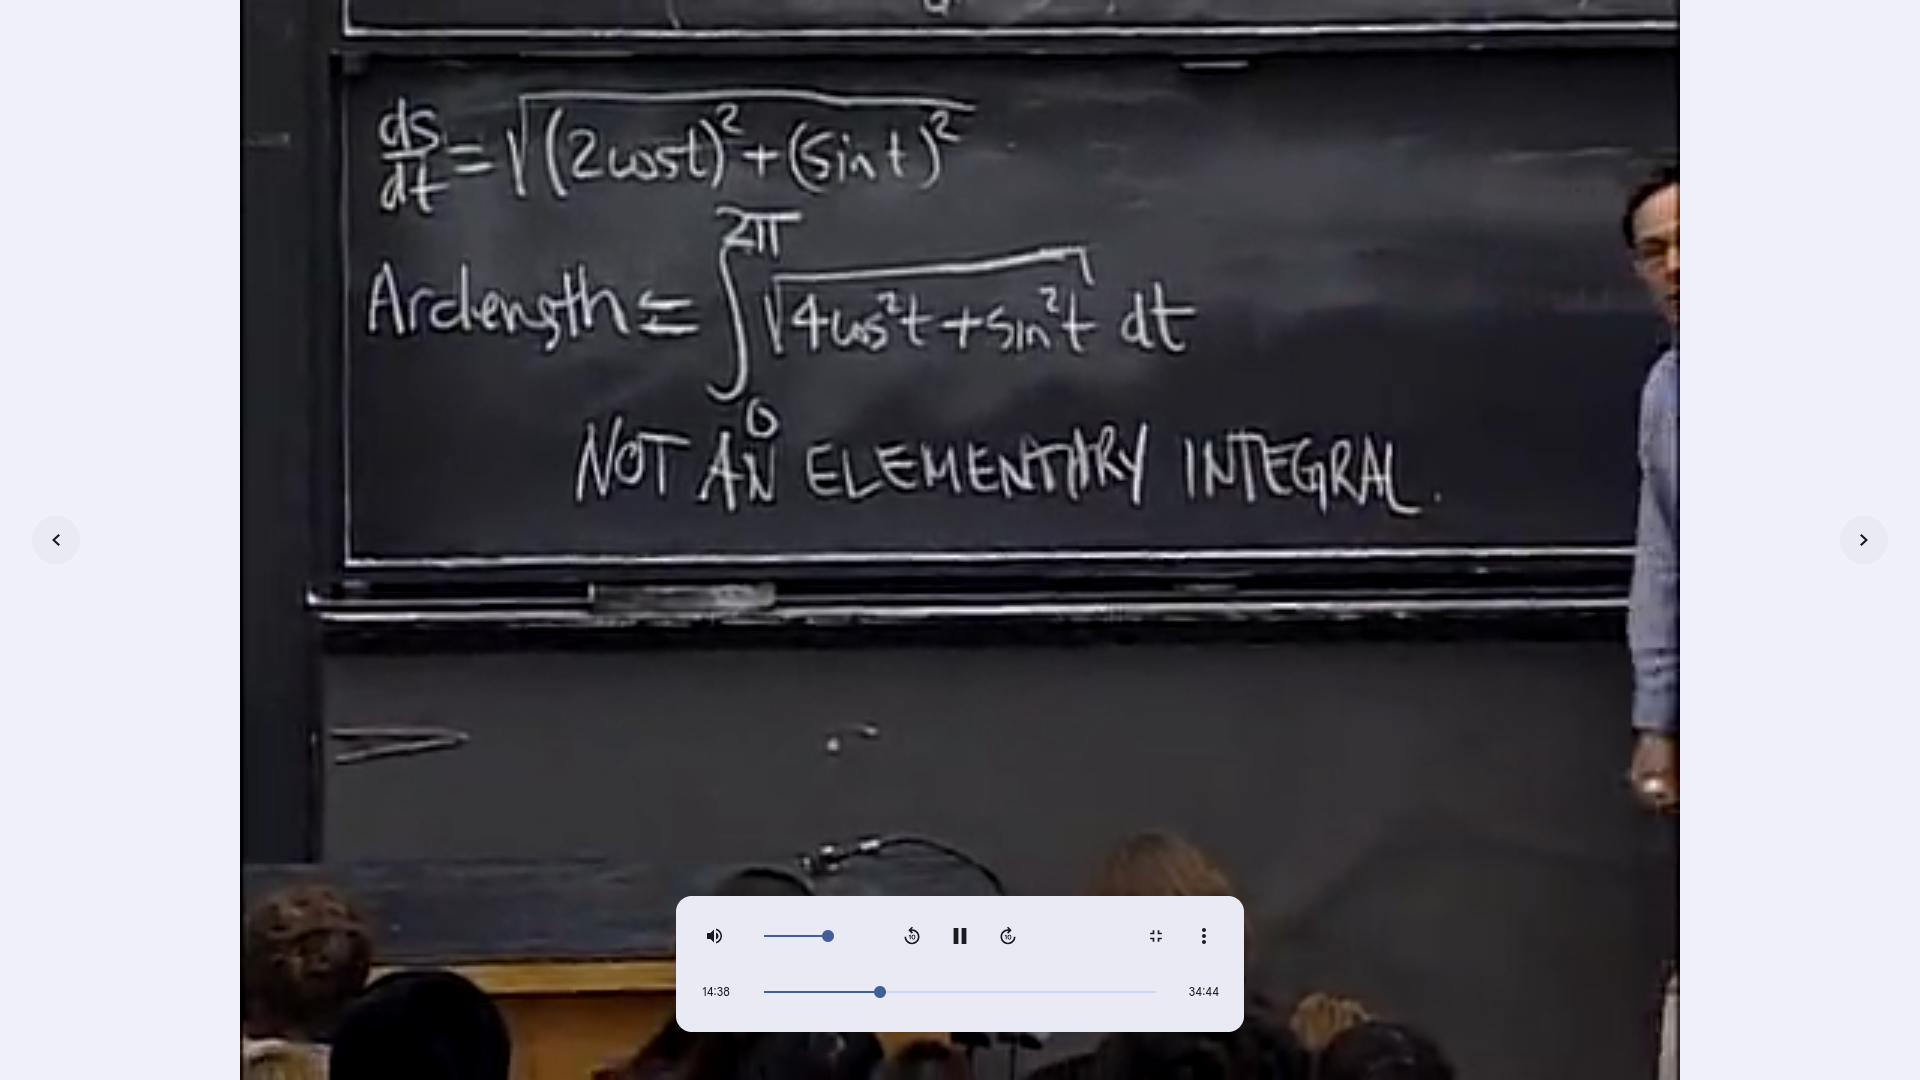 ds/dt = √((2cost)² + (sin t)²)
Arclength = ∫₀^2π √(4cos²t + sin²t) dt
NOT AN ELEMENTARY INTEGRAL.
10
10
14:38
34:44